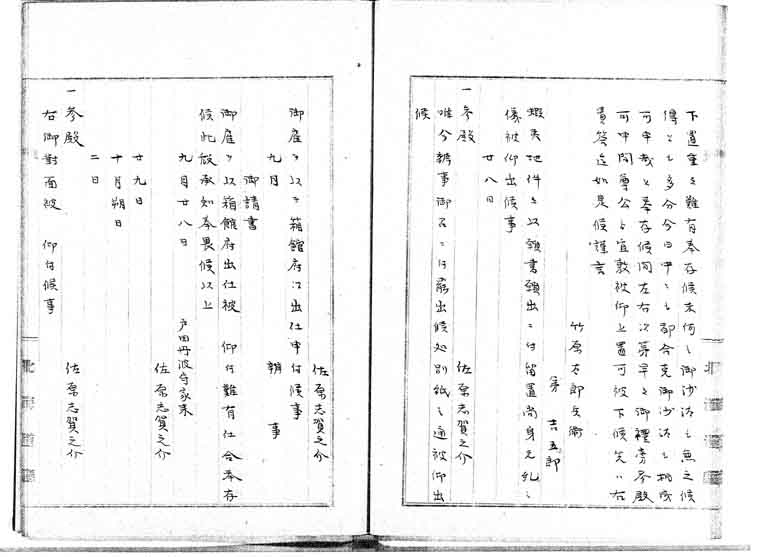 下置重々難有奉存候未何之御沙汰も無之候
得とも多分今日中ニも都合克御沙汰も
可申哉と奉存候間左右次第早々御禮旁参殿
可申間尊公宜敷被仰上置可被下候先ハ右
貴答迄如是候謹言
竹原太郎兵衛
第吉五郎
蝦夷地件々以願書願出ニ付留置尚身元
儀被仰出候事
廿八日
一参殿 佐原志賀之介
唯今辨事御召ニ付罷出候処別紙之通被仰出
候
佐原志賀之介
御雇ヲ以テ箱館府江出仕申付候事
九月 辨事
御請書
御雇ヲ以箱館府出仕被 仰付難有仕合奉存
候此段承知奉畏候以上
九月廿八日 戸田丹波守家来
佐原志賀之介
廿九日
十月朔日
二日
一参殿 佐原志賀之介
右御對面被 仰付候事
北海道廳
北海道廳